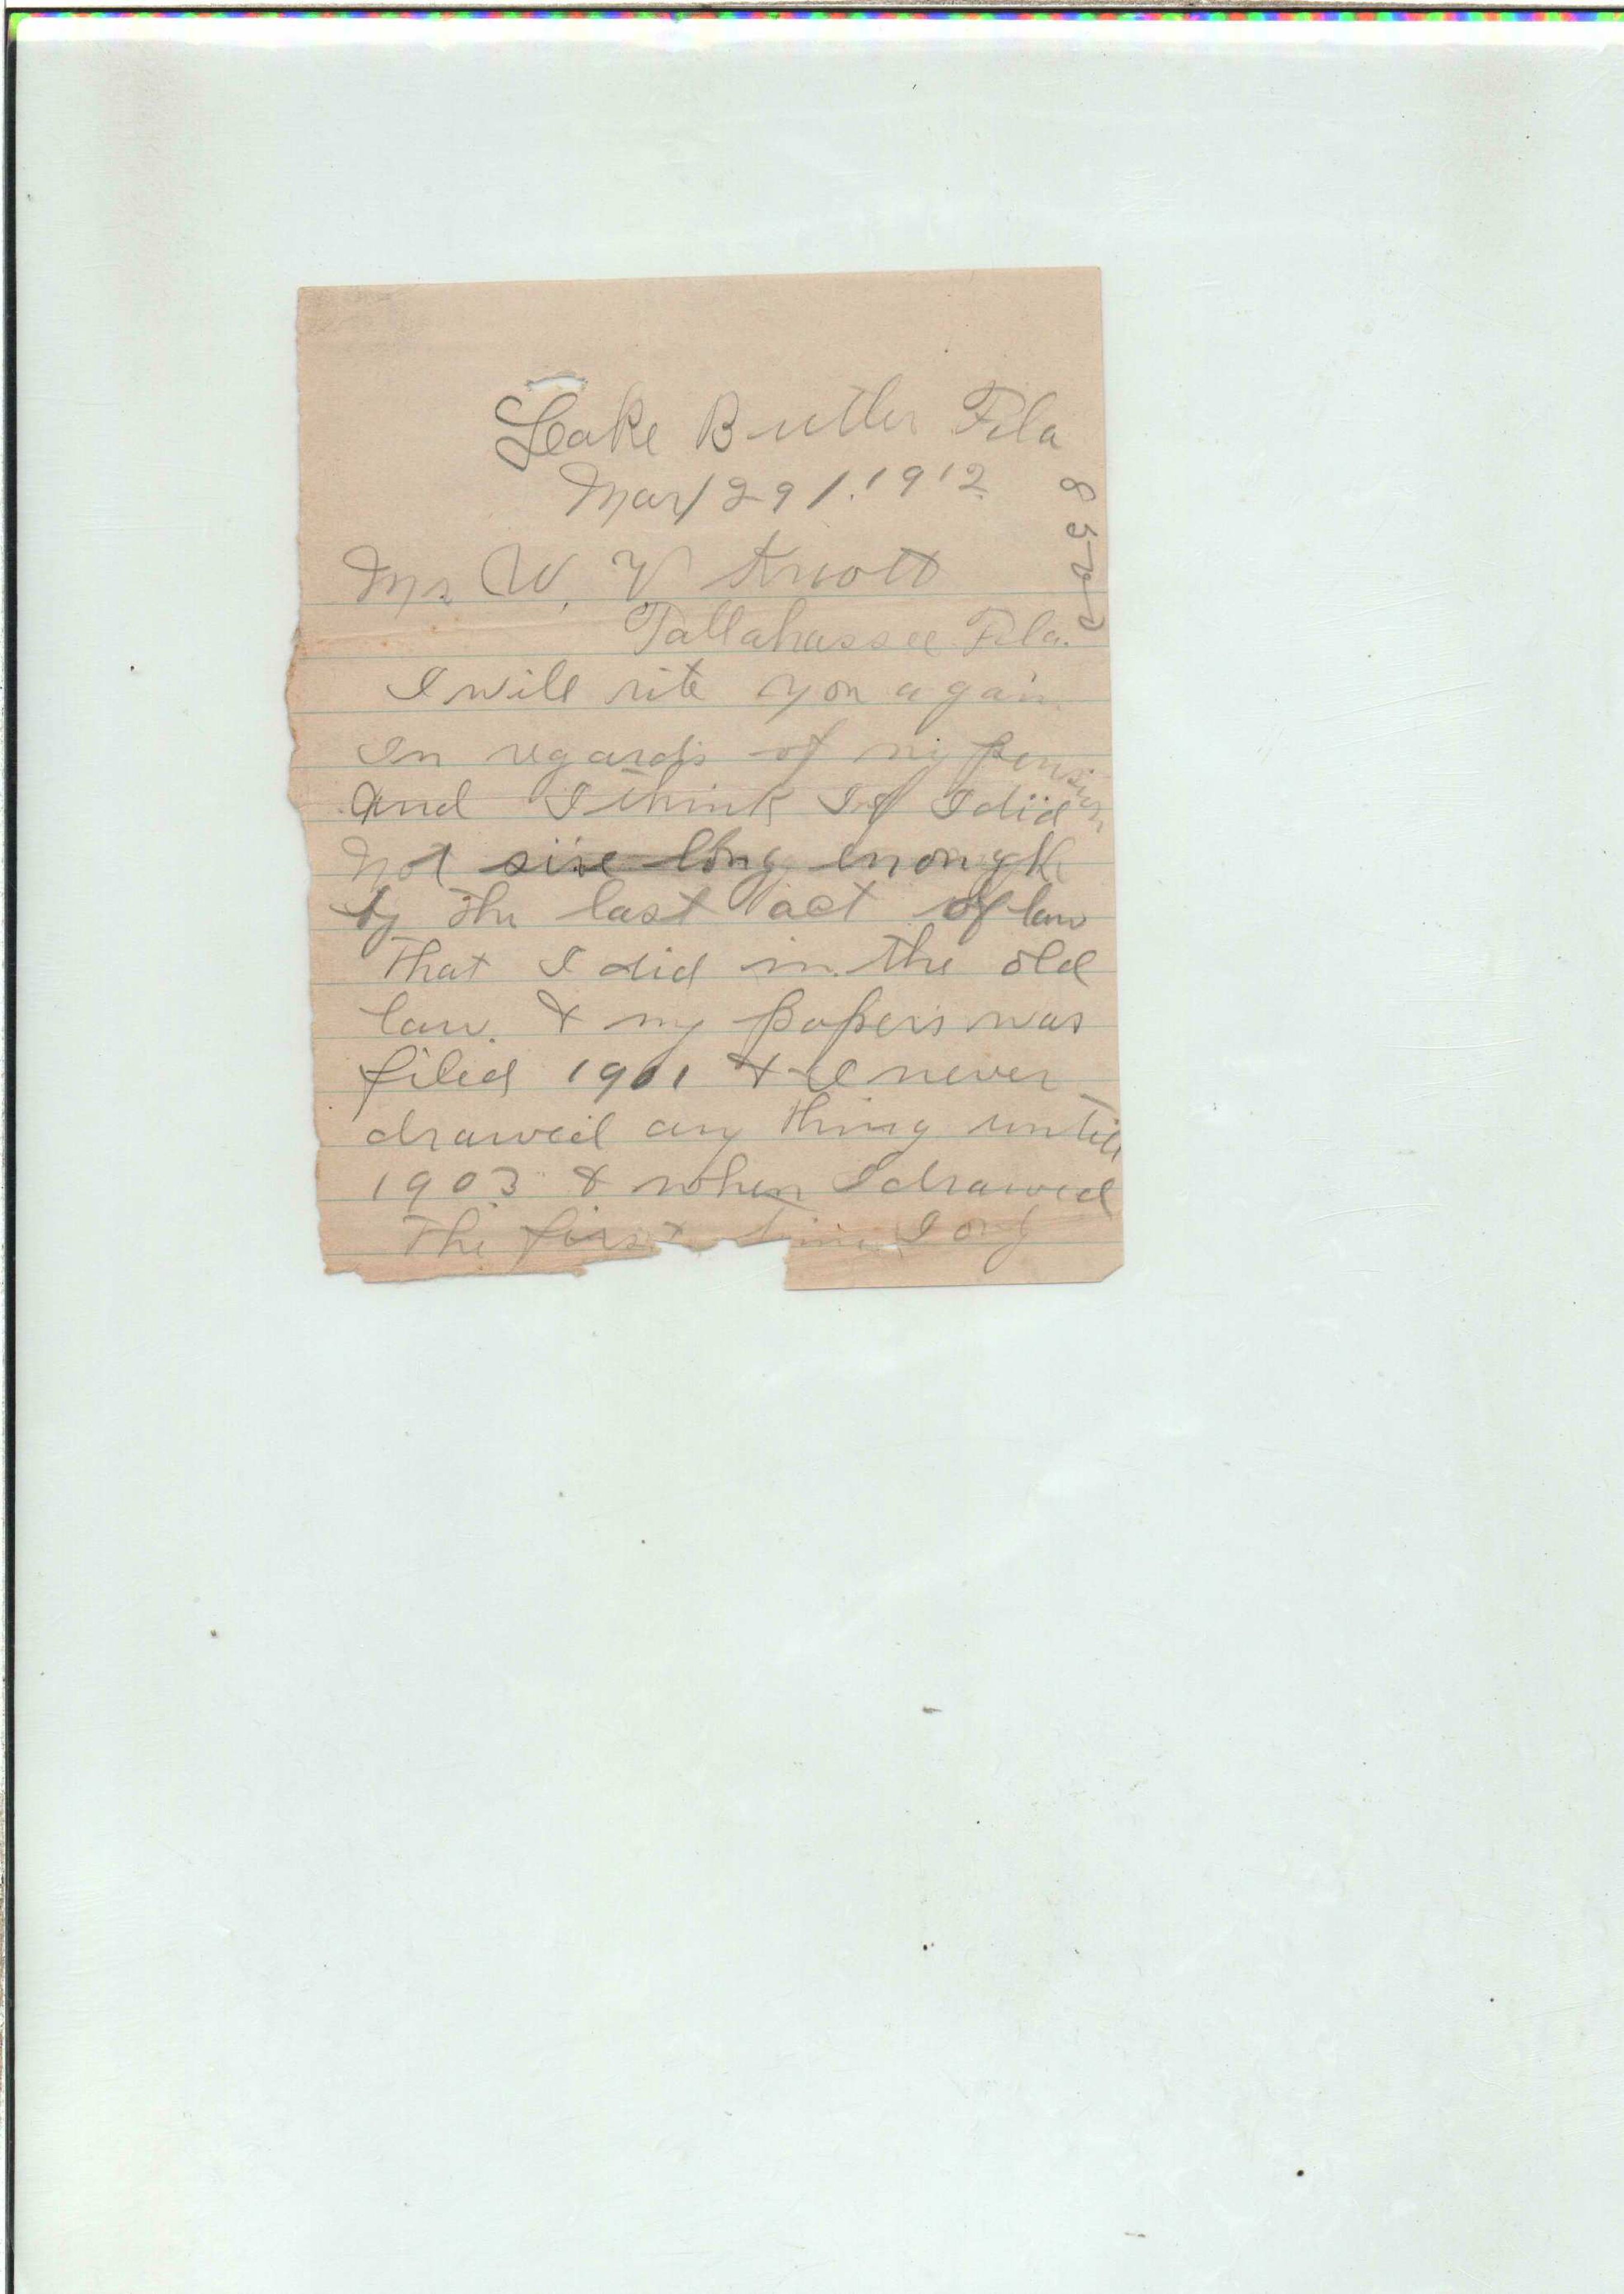 Lake Butler Fla
Mar/29/.1912
8522
Mr W. V Knott
Tallahassee Fla.
I will rite you again
In regards of my pension
And I think If I did
not sire long enough
by the last act of law
That I did in the old
law. & my papers was
filed 1901 & I never
drawed any thing untill
1903 & when I drawed
The first time I onl